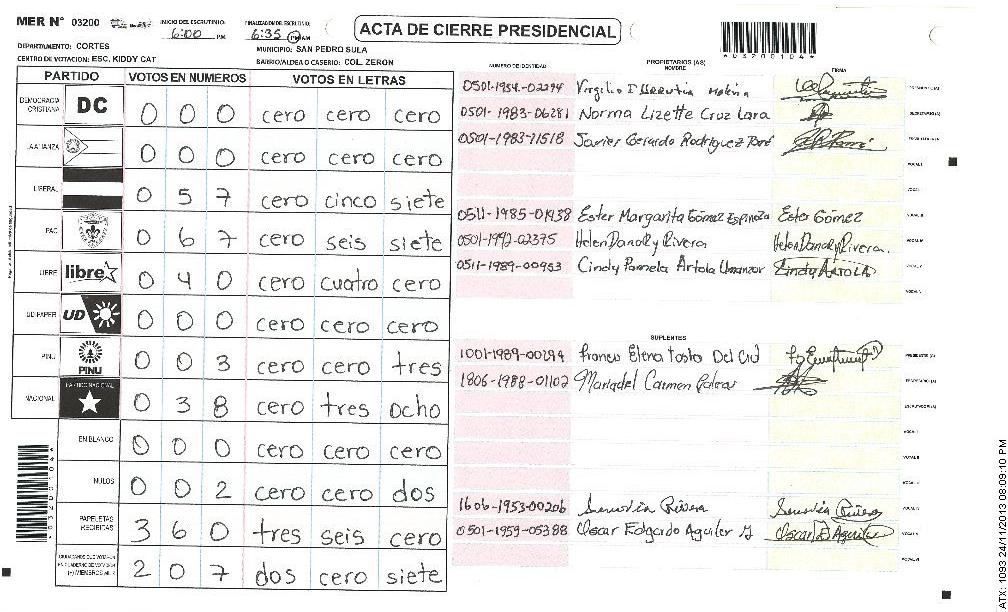 MER N° 03200
INICIO DEL ESCRUTINIO: 6:00 PM
FINALIZACION DE ESCRUTINIO: 6:35 PM AM
ACTA DE CIERRE PRESIDENCIAL
*03200104*
DEPARTAMENTO: CORTES
MUNICIPIO: SAN PEDRO SULA
CENTRO DE VOTACION: ESC. KIDDY CAT
BARRIO/ALDEA O CASERIO: COL. ZERON
PARTIDO VOTOS EN NUMEROS VOTOS EN LETRAS
NUMERO DE IDENTIDAD PROPIETARIOS (AS) NOMBRE FIRMA
DEMOCRACIA CRISTIANA DC 0 0 0 cero cero cero
LA ALIANZA 0 0 0 cero cero cero
LIBERAL 0 5 7 cero cinco siete
PAC 0 6 7 cero seis siete
LIBRE libre 0 4 0 cero cuatro cero
UD FAPER UD 0 0 0 cero cero cero
PINU PINU 0 0 3 cero cero tres
NACIONAL PARTIDO NACIONAL 0 3 8 cero tres ocho
EN BLANCO 0 0 0 cero cero cero
NULOS 0 0 2 cero cero dos
PAPELETAS RECIBIDAS 3 6 0 tres seis cero
CIUDADANOS QUE VOTARON 2 0 7 dos cero siete
Virgilio
0501-1983-06281 Norma Lizette Cruz Lara
0501-1983-11518 Javier Gerardo Rodriguez
0511-1985-01438 Ester Margarita Gómez Espinoza Ester Gómez
0501-1992-02375 Helen Danory Rivera Helen Danory Rivera
0511-1989-00953 Cindy Pamela Artola Umanzor Cindy Artola
SUPLENTES
1001-1989-00294 Elena Tosta Del Cid
1806-1988-01102 Mariadel Carmen
1606-1953-00206 Rivera Rivera
0501-1959-05388 Oscar Edgardo Aguilar Oscar
*03200104*
ATX: 1093 24/11/2013 08:09:10 PM